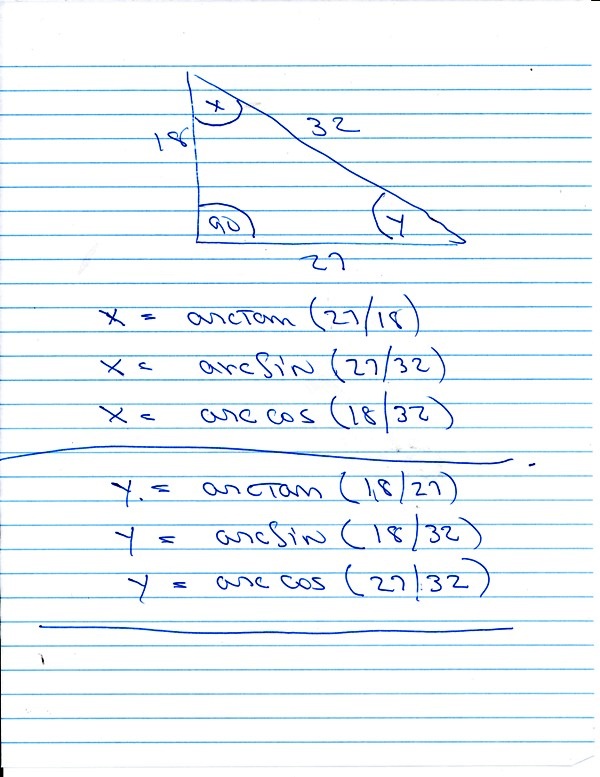 x
18
32
90
y
27
x = arctan (27/18)
x = arcsin (27/32)
x = arc cos (18/32)
y = arctan (18/27)
y = arcsin (18/32)
y = arc cos (27/32)